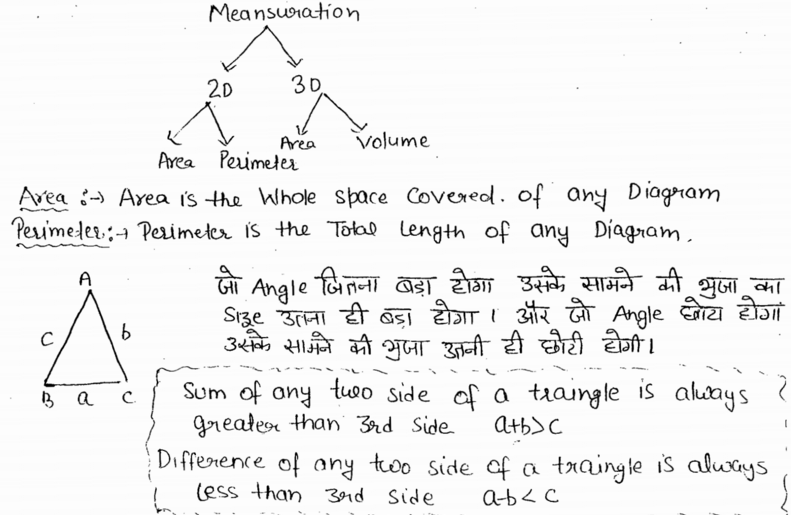 Meansuration
2D 3D
Area Perimeter Area Volume
Area :→ Area is the Whole space Covered. of any Diagram
Perimeter :→ Perimeter is the Total Length of any Diagram.
A
जो Angle जितना बड़ा होगा उसके सामने की भुजा का
Size उतना ही बड़ा होगा। और जो Angle छोटा होगा
उसके सामने की भुजा उतनी ही छोटी होगी।
C b
B a C
Sum of any two side of a traingle is always
greater than 3rd side a+b>c
Difference of any two side of a traingle is always
less than 3rd side a-b<c